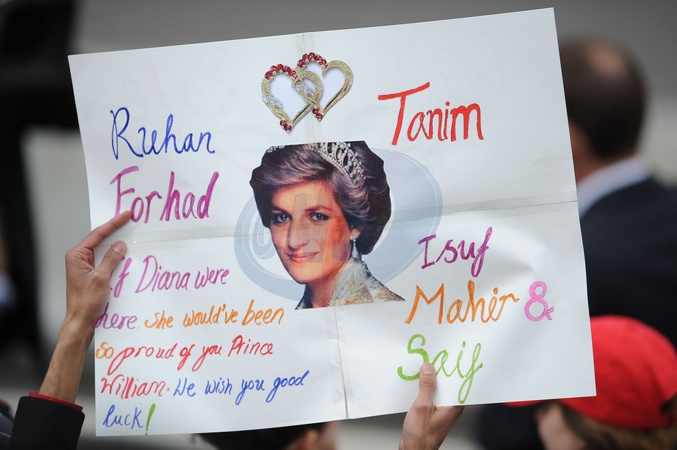 Ruhan
Forhad
If Diana were
here she would've been
so proud of you Prince
William. We wish you good
luck!
Tanim
Isuf
Mahir &
Saif